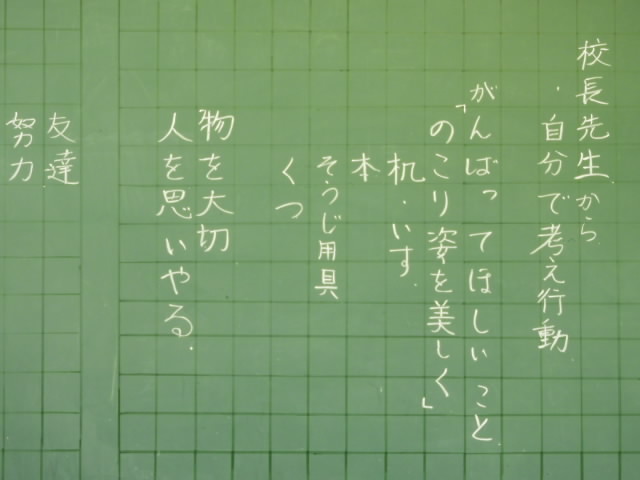 校長先生から
・自分で考え行動
がんばってほしいこと
「のこり姿を美しく」
机・いす
本
そうじ用具
くつ
物を大切
人を思いやる。
友達
努力